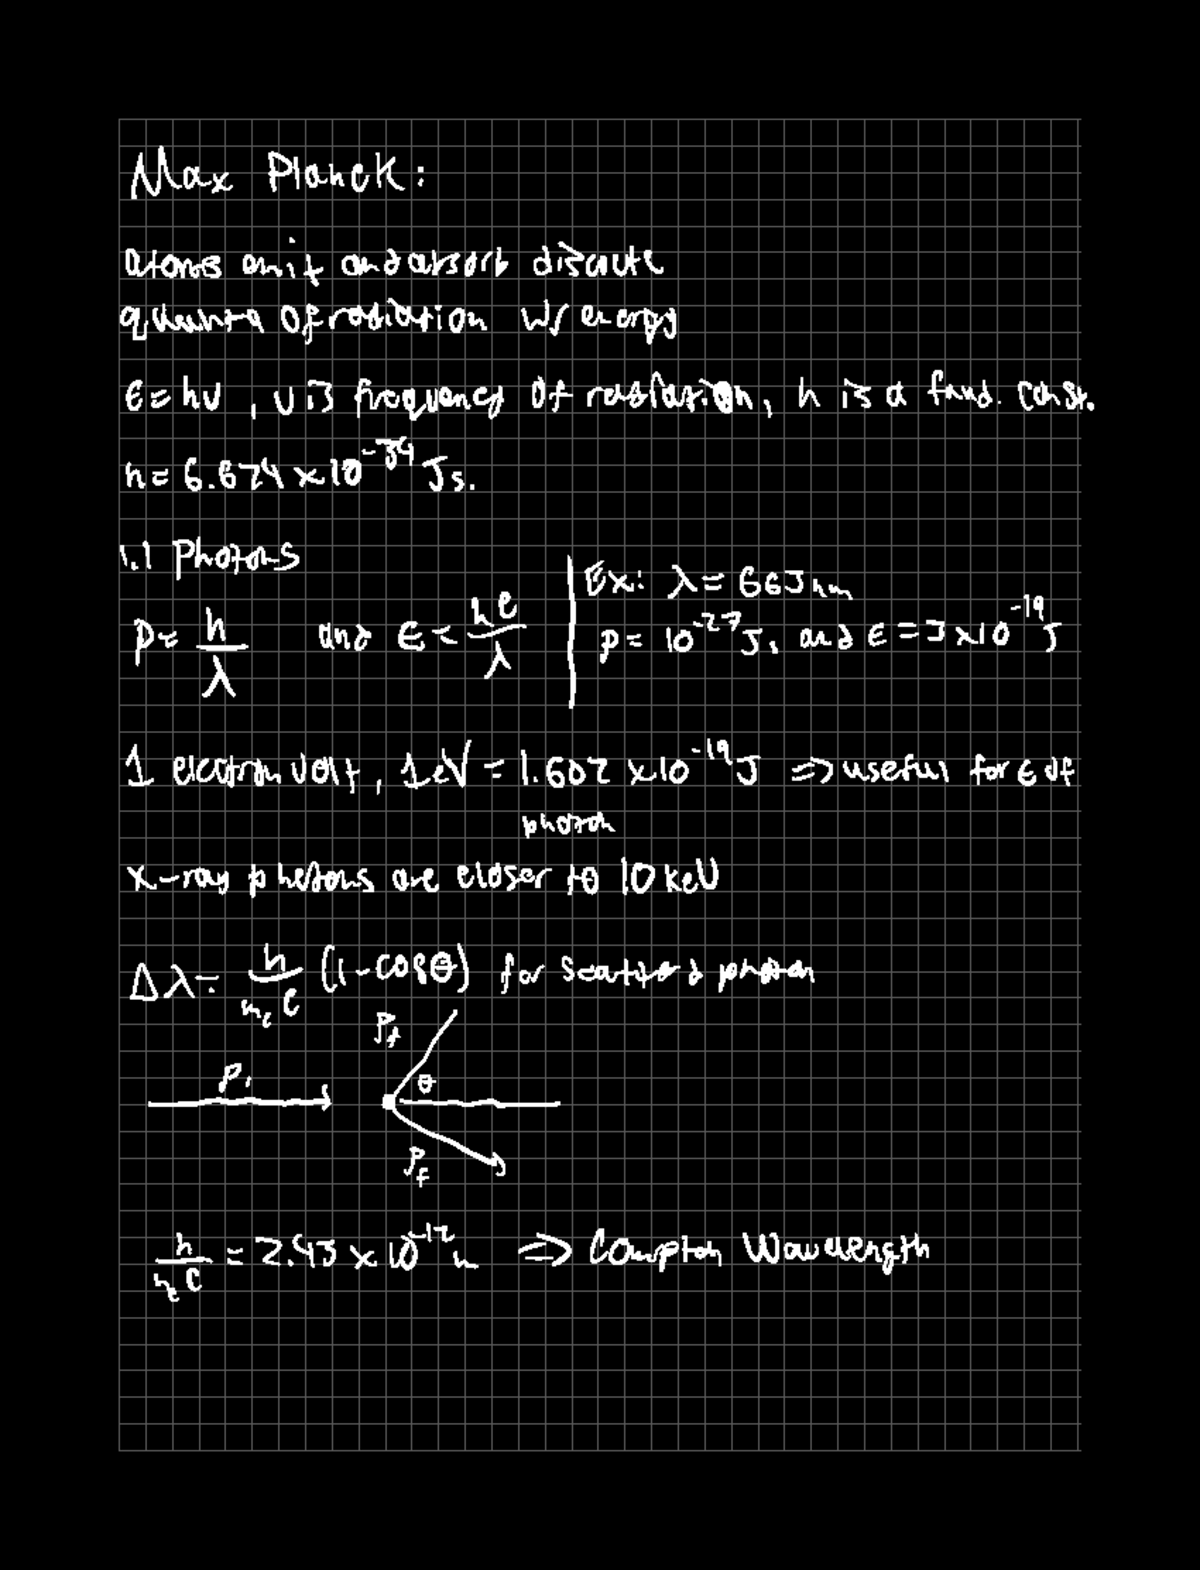 Max Planck:
atoms emit and absorb discrete
quanta of radiation w/ energy
ϵ = hν, ν is frequency of radiation, h is a fund. const.
h = 6.624 × 10⁻³⁴ Js.
1.1 Photons
p = h/λ and ϵ = hc/λ
Ex: λ = 663 nm
p = 10⁻²⁷ J, and ϵ = 3 × 10⁻¹⁹ J
1 electron volt, 1eV = 1.602 × 10⁻¹⁹ J ⇒ useful for ϵ of
photon
x-ray photons are closer to 10 keV
Δλ = h/mₑc (1 - cosθ) for scattered photon
p_f
pᵢ
θ
p_f
h/mₑc = 2.43 × 10⁻¹² m ⇒ Compton Wavelength